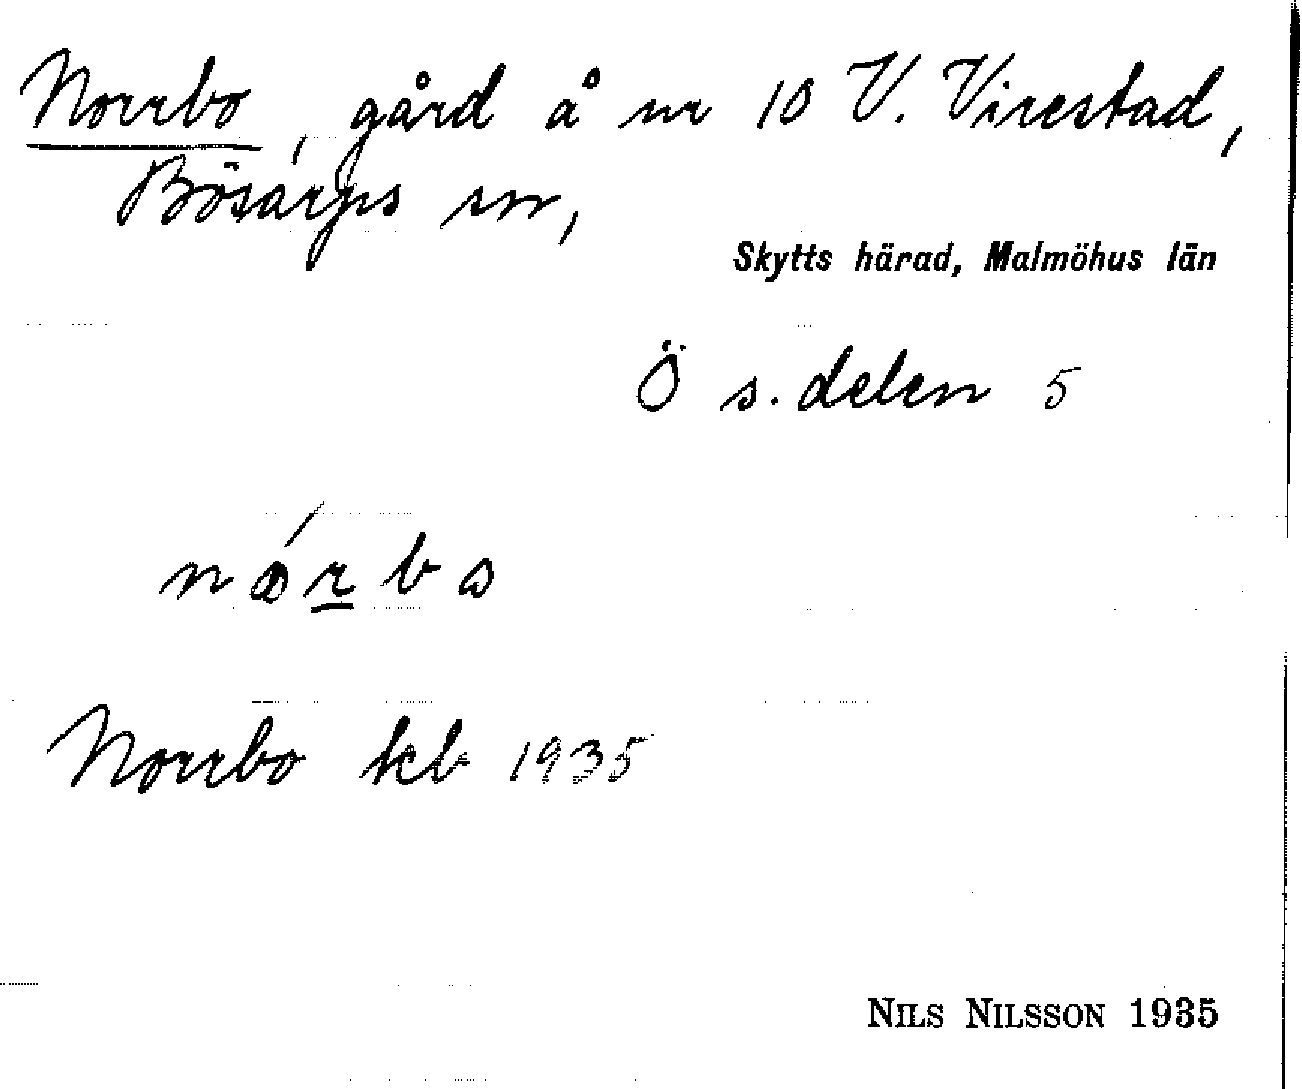 Norrbo, gård å nr 10 V. Virestad,
Bösarps sn,
Skytts härad, Malmöhus län
Ö s. delen 5
Norrbo kb 1935
NILS NILSSON 1935